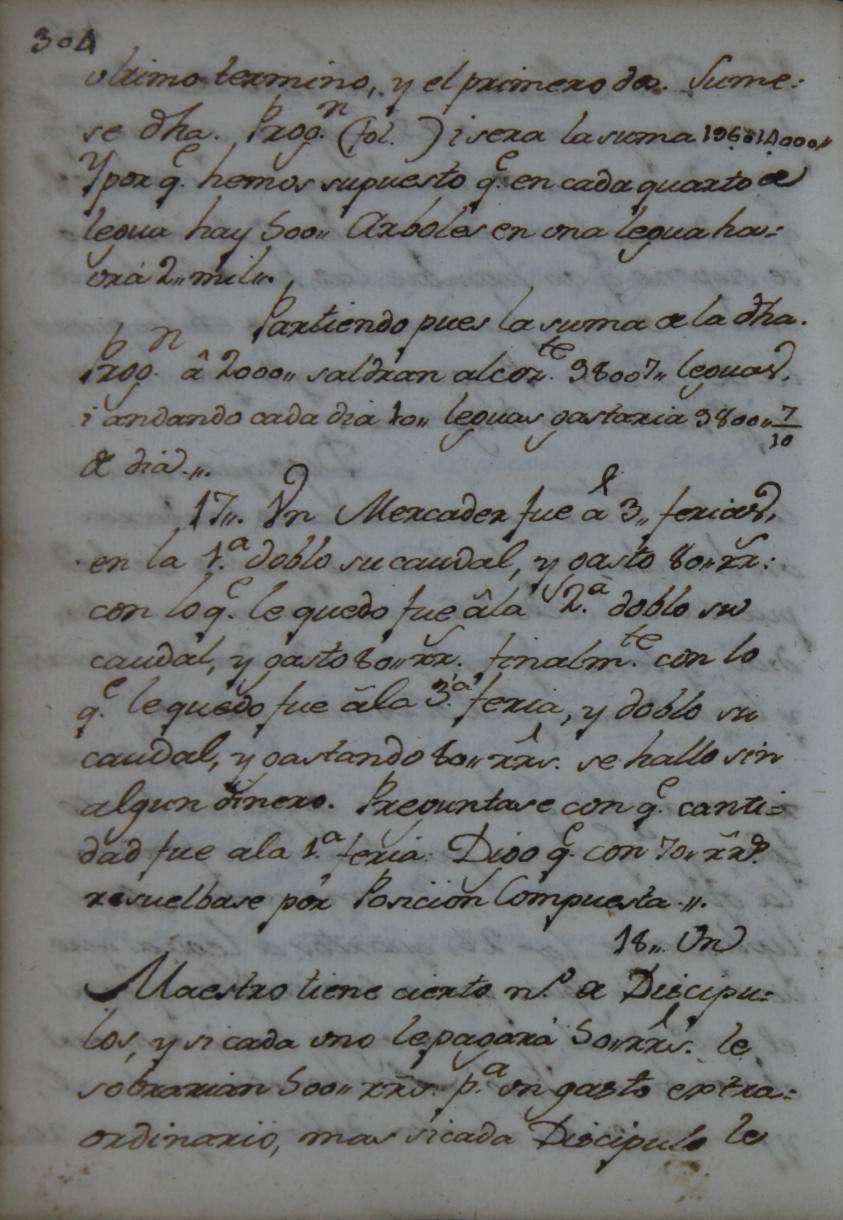 304
ultimo termino, y el primero dos. Sume-
se dha. Prog.n (fol. ) i sera la suma
Y por q.e hemos supuesto q.e en cada quarto de
legua hay 500,, Arboles en una legua ha-
vrá 2,, mil,,.
Partiendo pues la suma de la dha.
Prog.n â 2000,, saldran al cor.te 38007,, leguas,
i andando cada dia 10,, leguas gastaria 3800,, 7/10
de dia.,,
17,,. Vn Mercader fue à 3,, ferias,
en la 1.a doblo su caudal, y gasto 80,, rr.s:
con lo q.e le quedo fue âla 2.a doblo su
caudal, y gasto 80,, rr.s. finalm.te con lo
q.e le quedo fue âla 3.a feria, y doblo su
caudal, y gastando 80,, rr.s. se hallo sin
algun dinero. Preguntase con q.e canti-
dad fue ala 1.a feria: Digo q.e con 70,, rr.s.
resuelbase por Posicion Compuesta.,,
18,,. Vn
Maestro tiene cierto n.o de Discipu-
los, y si cada uno le pagára 50,, rr.s. le
sobrarian 500,, rr.s. p.a un gasto extra-
ordinario, mas si cada Discipulo le